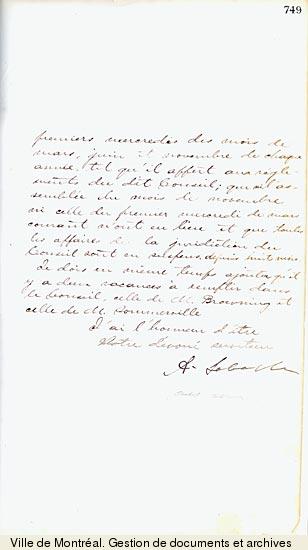 749
premiers mercredis des mois de
mars, juin et novembre de chaque
année, tel qu'il appert aux règle-
ments du dit Conseil; qu'ni l'as-
semblée du mois de novembre
ni celle du premier mercredi de mars
courant n'ont eu lieu et que toutes
les affaires de la juridiction du
Conseil sont en suspens depuis huit mois.
Je dois en même temps ajouter qu'il
y a deux vacances à remplir dans
le Conseil, celle de M. Browning et
celle de M. Sommerville
J'ai l'honneur d'être
Votre dévoué serviteur
A.
Ville de Montréal. Gestion de documents et archives